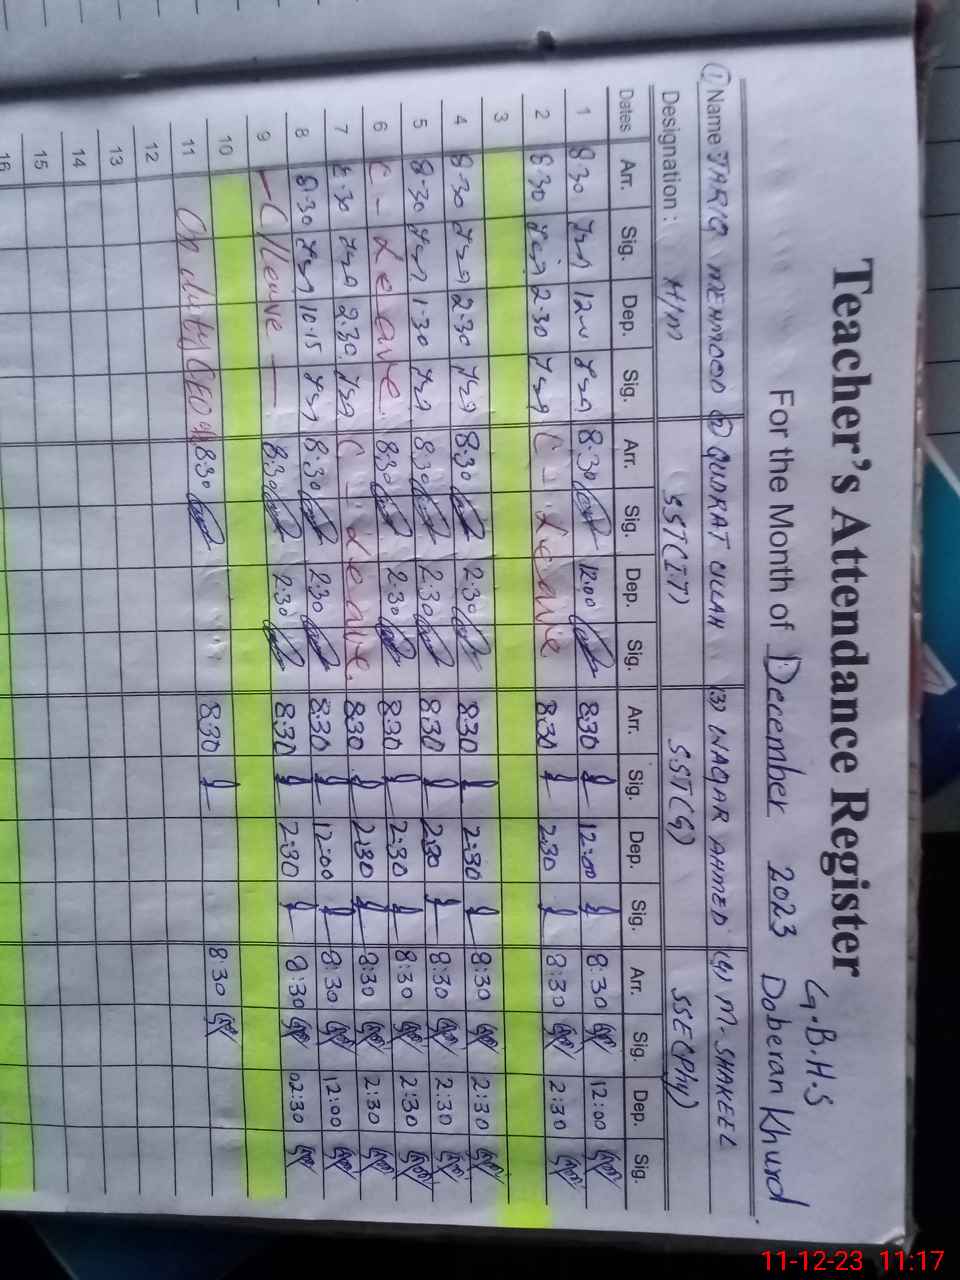 Teacher's Attendance Register
G.B.H.S
For the Month of December 2023 Doberan Khurd
① Name TARIQ MEHMOOD ② QUDRAT ULLAH (3) WAQAR AHMED (4) M. SHAKEEL
Designation : H/M SST(IT) SST(G) SSE(Phy)
Dates Arr. Sig. Dep. Sig. Arr. Sig. Dep. Sig. Arr. Sig. Dep. Sig. Arr. Sig. Dep. Sig.
1 8:30 8:30 12:00 8:30 12:00 8:30 12:00
2 8:30 2:30 C - Leave 8:30 2:30 8:30 2:30
3
4 8-30 2-30 8:30 2:30 8:30 2:30 8:30 2:30
5 8-30 1-30 8:30 2:30 8:30 2:30 8:30 2:30
6 C - Leave 8:30 2:30 8:30 2:30 8:30 2:30
7 8:30 2:30 C - Leave 8:30 2:30 8:30 2:30
8 8:30 10:15 8:30 2:30 8:30 12:00 8:30 12:00
9 C/leave 8:30 2:30 8:30 2:30 8:30 02:30
10
11 On duty CEO 8:30 8:30 8:30
12
13
14
15
16
11-12-23 11:17